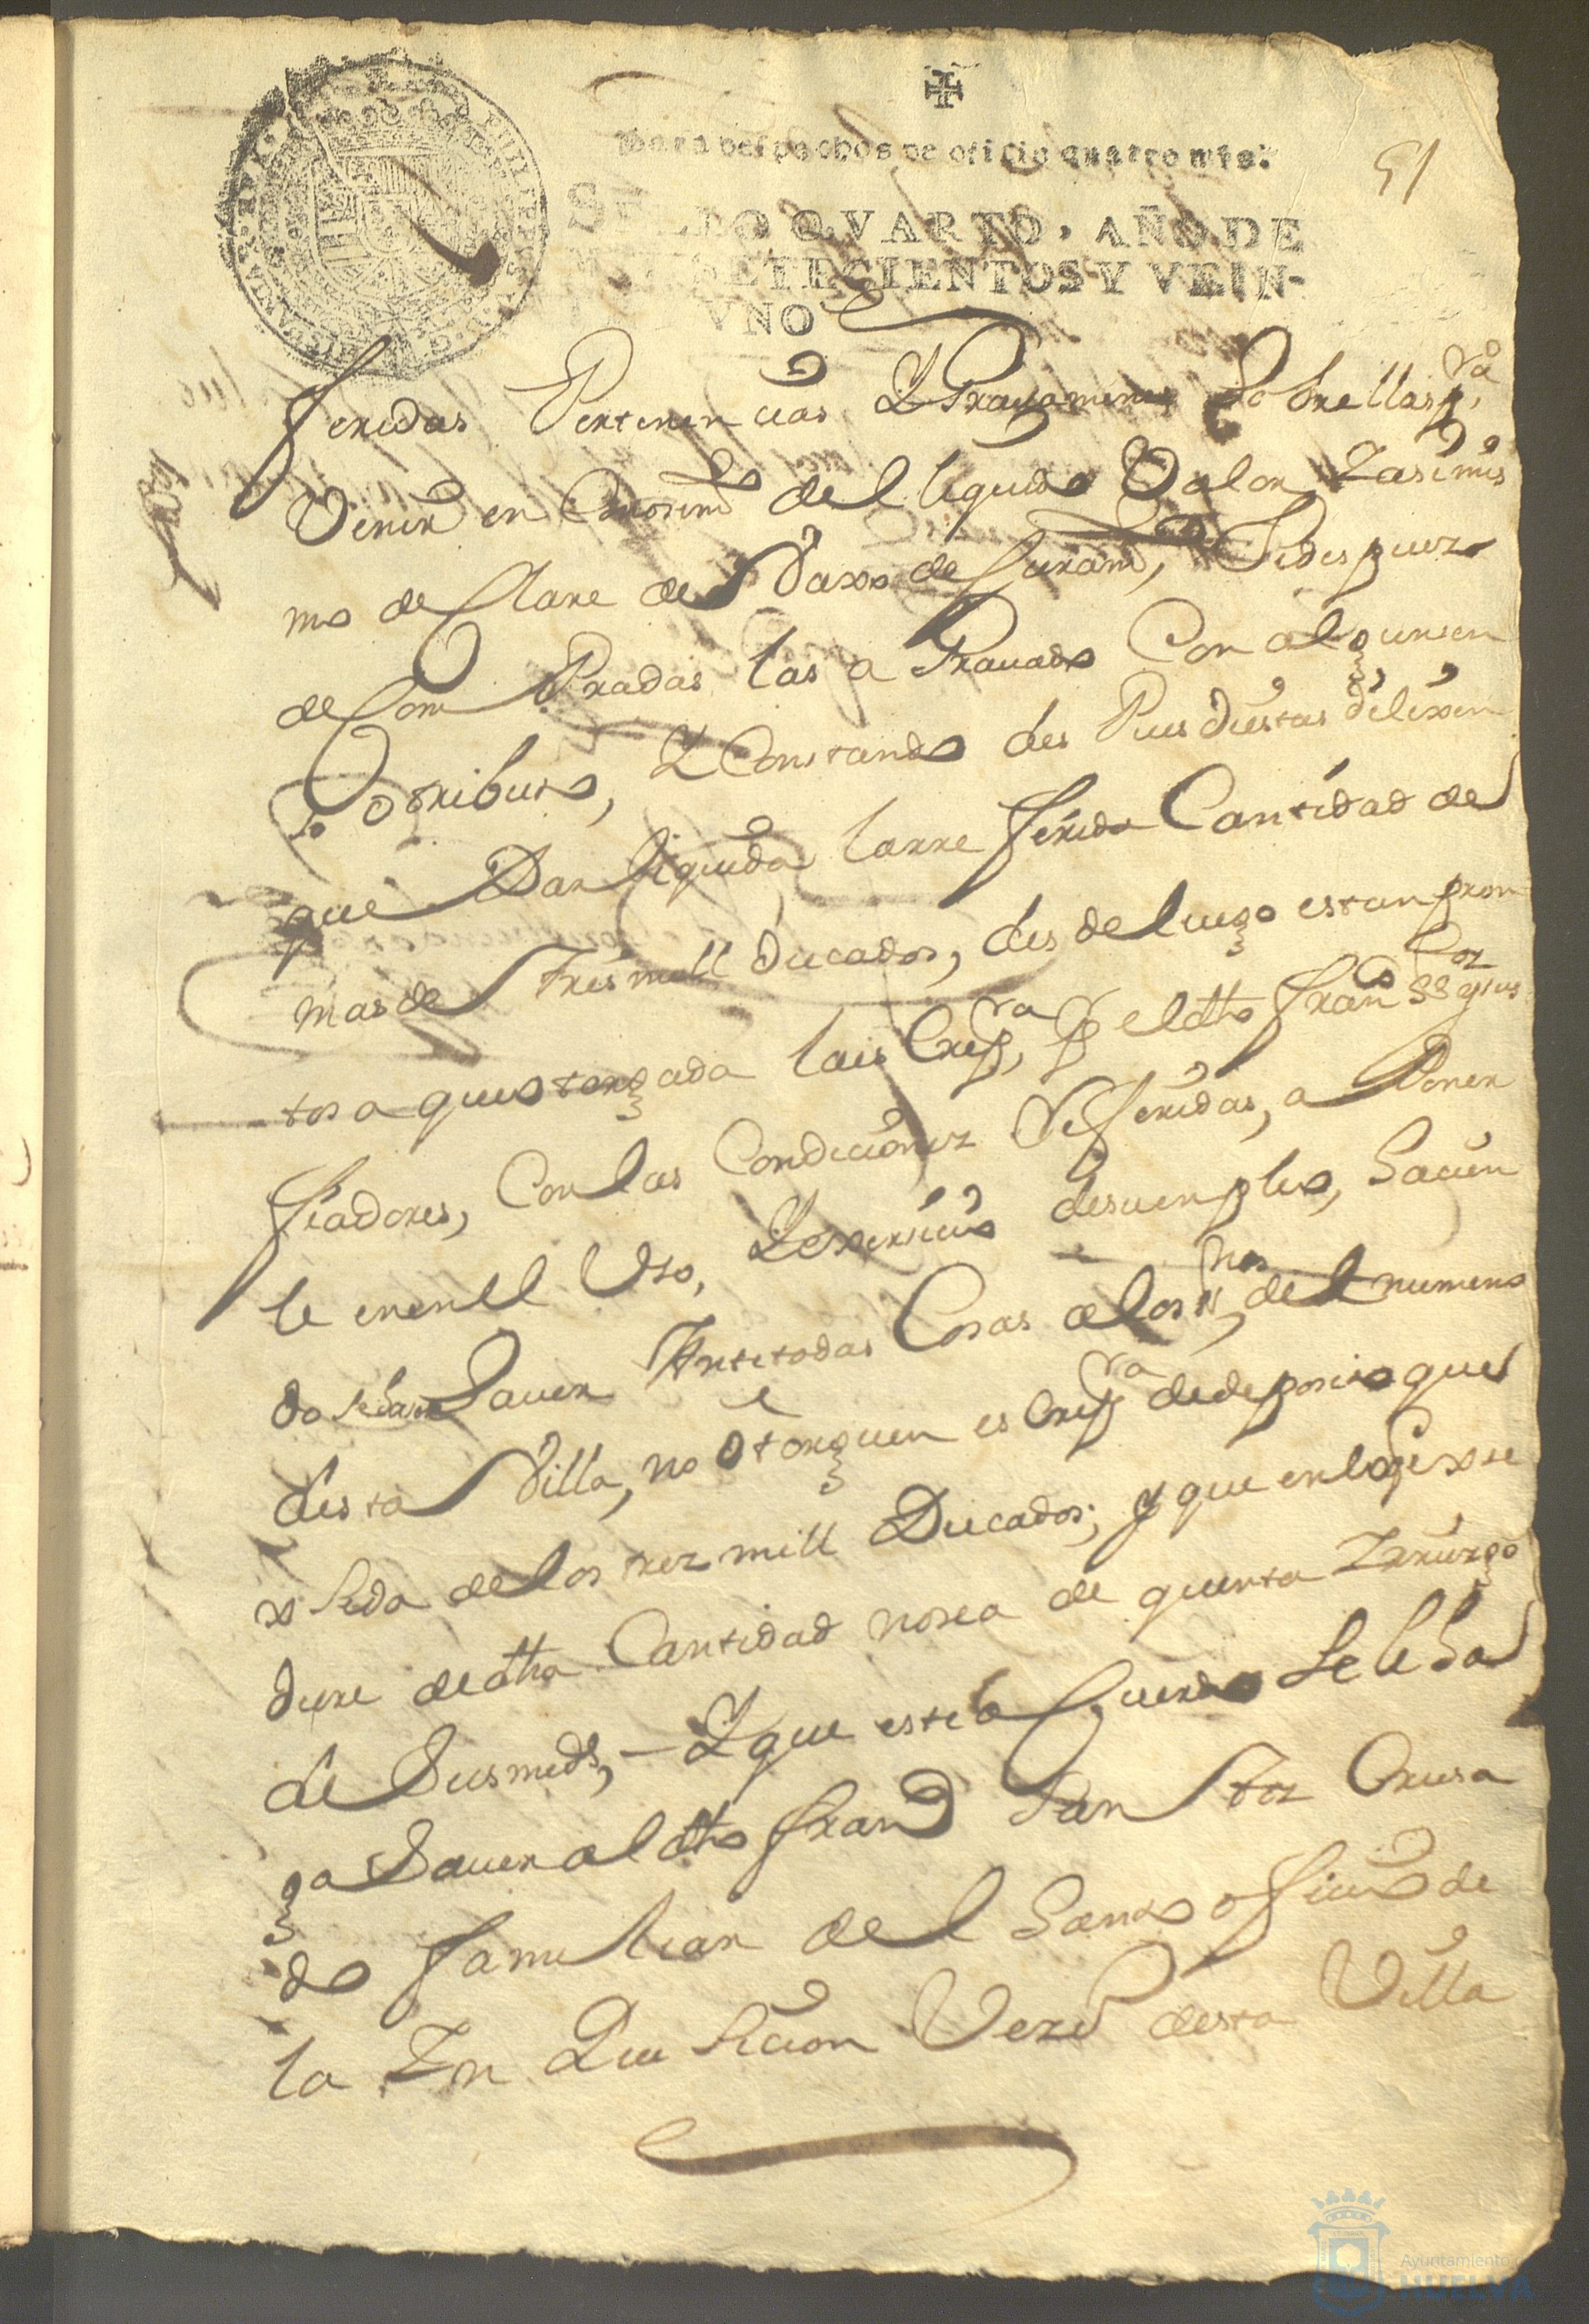 Para despachos de oficio quatro mrs.
51
SELLO QVARTO, AÑO DE
MIL SETECIENTOS Y VEIN-
VNO
feridas Pertenencias Y Gravamines Sobrellas pra
Venir en Conosimto del liquido Valor Y asimis
mo de Clare devaxo de Juramto, Si despuez
de Com Pradas las a Gravado Con algun sen
so o tributo, Y Constando des Pues destas dilixen
que Dan liquida larre ferida Cantidad de
mas de tres mill ducados, des de luego estan pron
tos a que otorgada la es Cripra, pr el dho franco ssoz y sus
fiadores, Con las Condicionez Refferidas, a Poner
le en en ll Uso, Y exersicio desu enpleo, Sacien
dose Saver Ante todas Cosas a los ssnos del numero
desta Villa, no otorguen es Cripra de deposito que
exseda de los trez mill Ducados; y que en lo que exse
diere de dha Cantidad no sea de quenta Y rriezgo
de Susmeds, – Y que este a Cuerdo Se le ha
ga Saver al dho franco San tos Crusa
do familiar del Santo officio de
la In Qui Sicion Vezo desta Villa
Ayuntamiento de
HUELVA